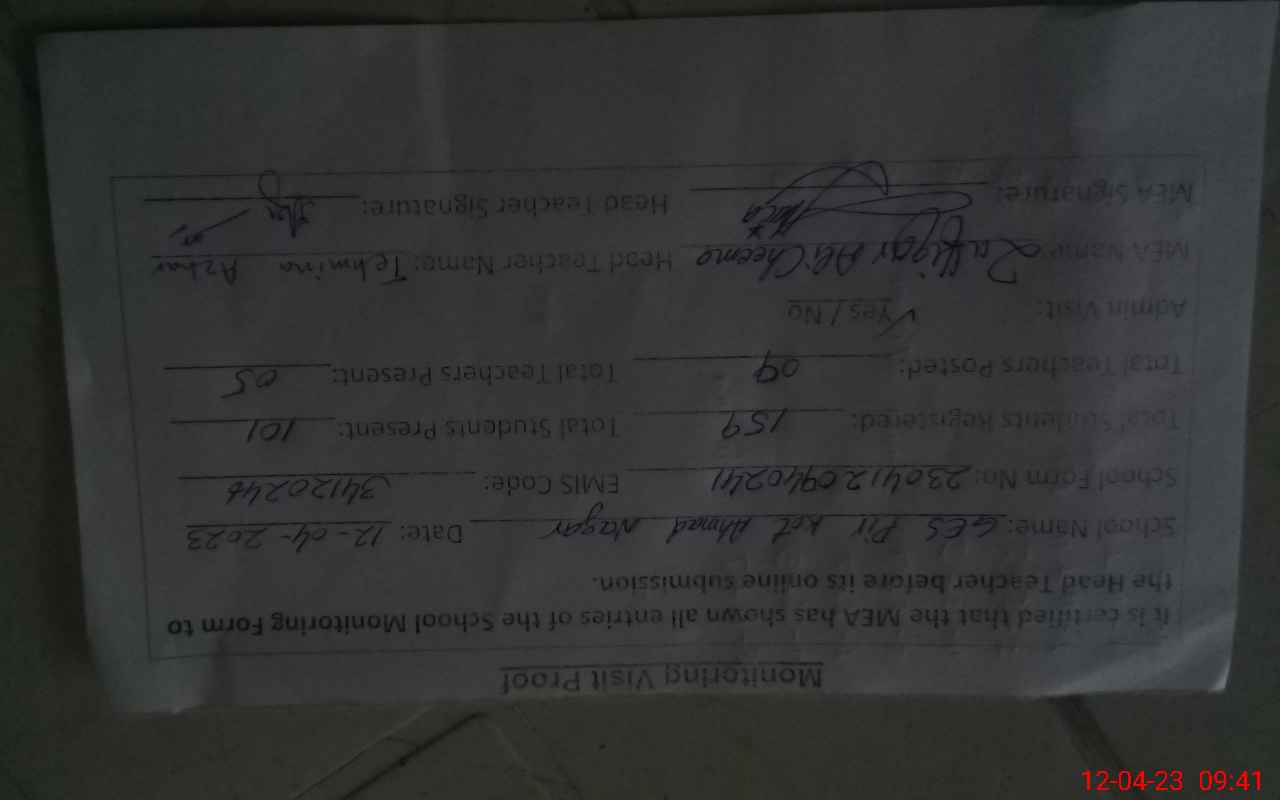 Monitoring Visit Proof
It is certified that the MEA has shown all entries of the School Monitoring Form to
the Head Teacher before its online submission.
School Name: GES Pir Kot Ahmad Nagar Date: 12-04-2023
School Form No: 23041209440241 EMIS Code: 34120240
Total Students Registered: 159 Total Students Present: 101
Total Teachers Posted: 09 Total Teachers Present: 05
Admin Visit: ✓Yes / No
MEA Name: Zulfiqar Ali Cheema Head Teacher Name: Tehmina Azhar
MEA Signature: Head Teacher Signature:
12-04-23 09:41